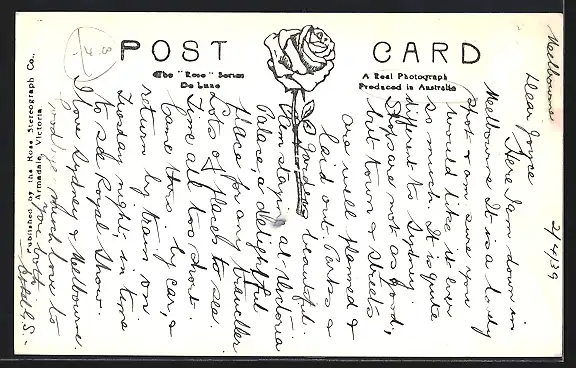 POST CARD
The "Rose" Series
De Luxe
A Real Photograph
Produced in Australia
Published by the Rose Stereograph Co.,
Armadale, Victoria
Melbourne
2/4/39
Dear Joyce
Here I am down in
Melbourne. It is a lovely
spot & am sure you
would like it ever
so much. It is quite
different to Sydney.
Shops are not as good,
but town & streets
are well planned &
laid out. Parks &
Gardens beautiful.
Am staying at Victoria
Palace, a delightful
place for any traveller
Lots of places to see.
Time all too short.
Came down by car, &
return by train on
Tuesday night in time
to see Royal Show.
I love Sydney & Melbourne.
much love to
you both